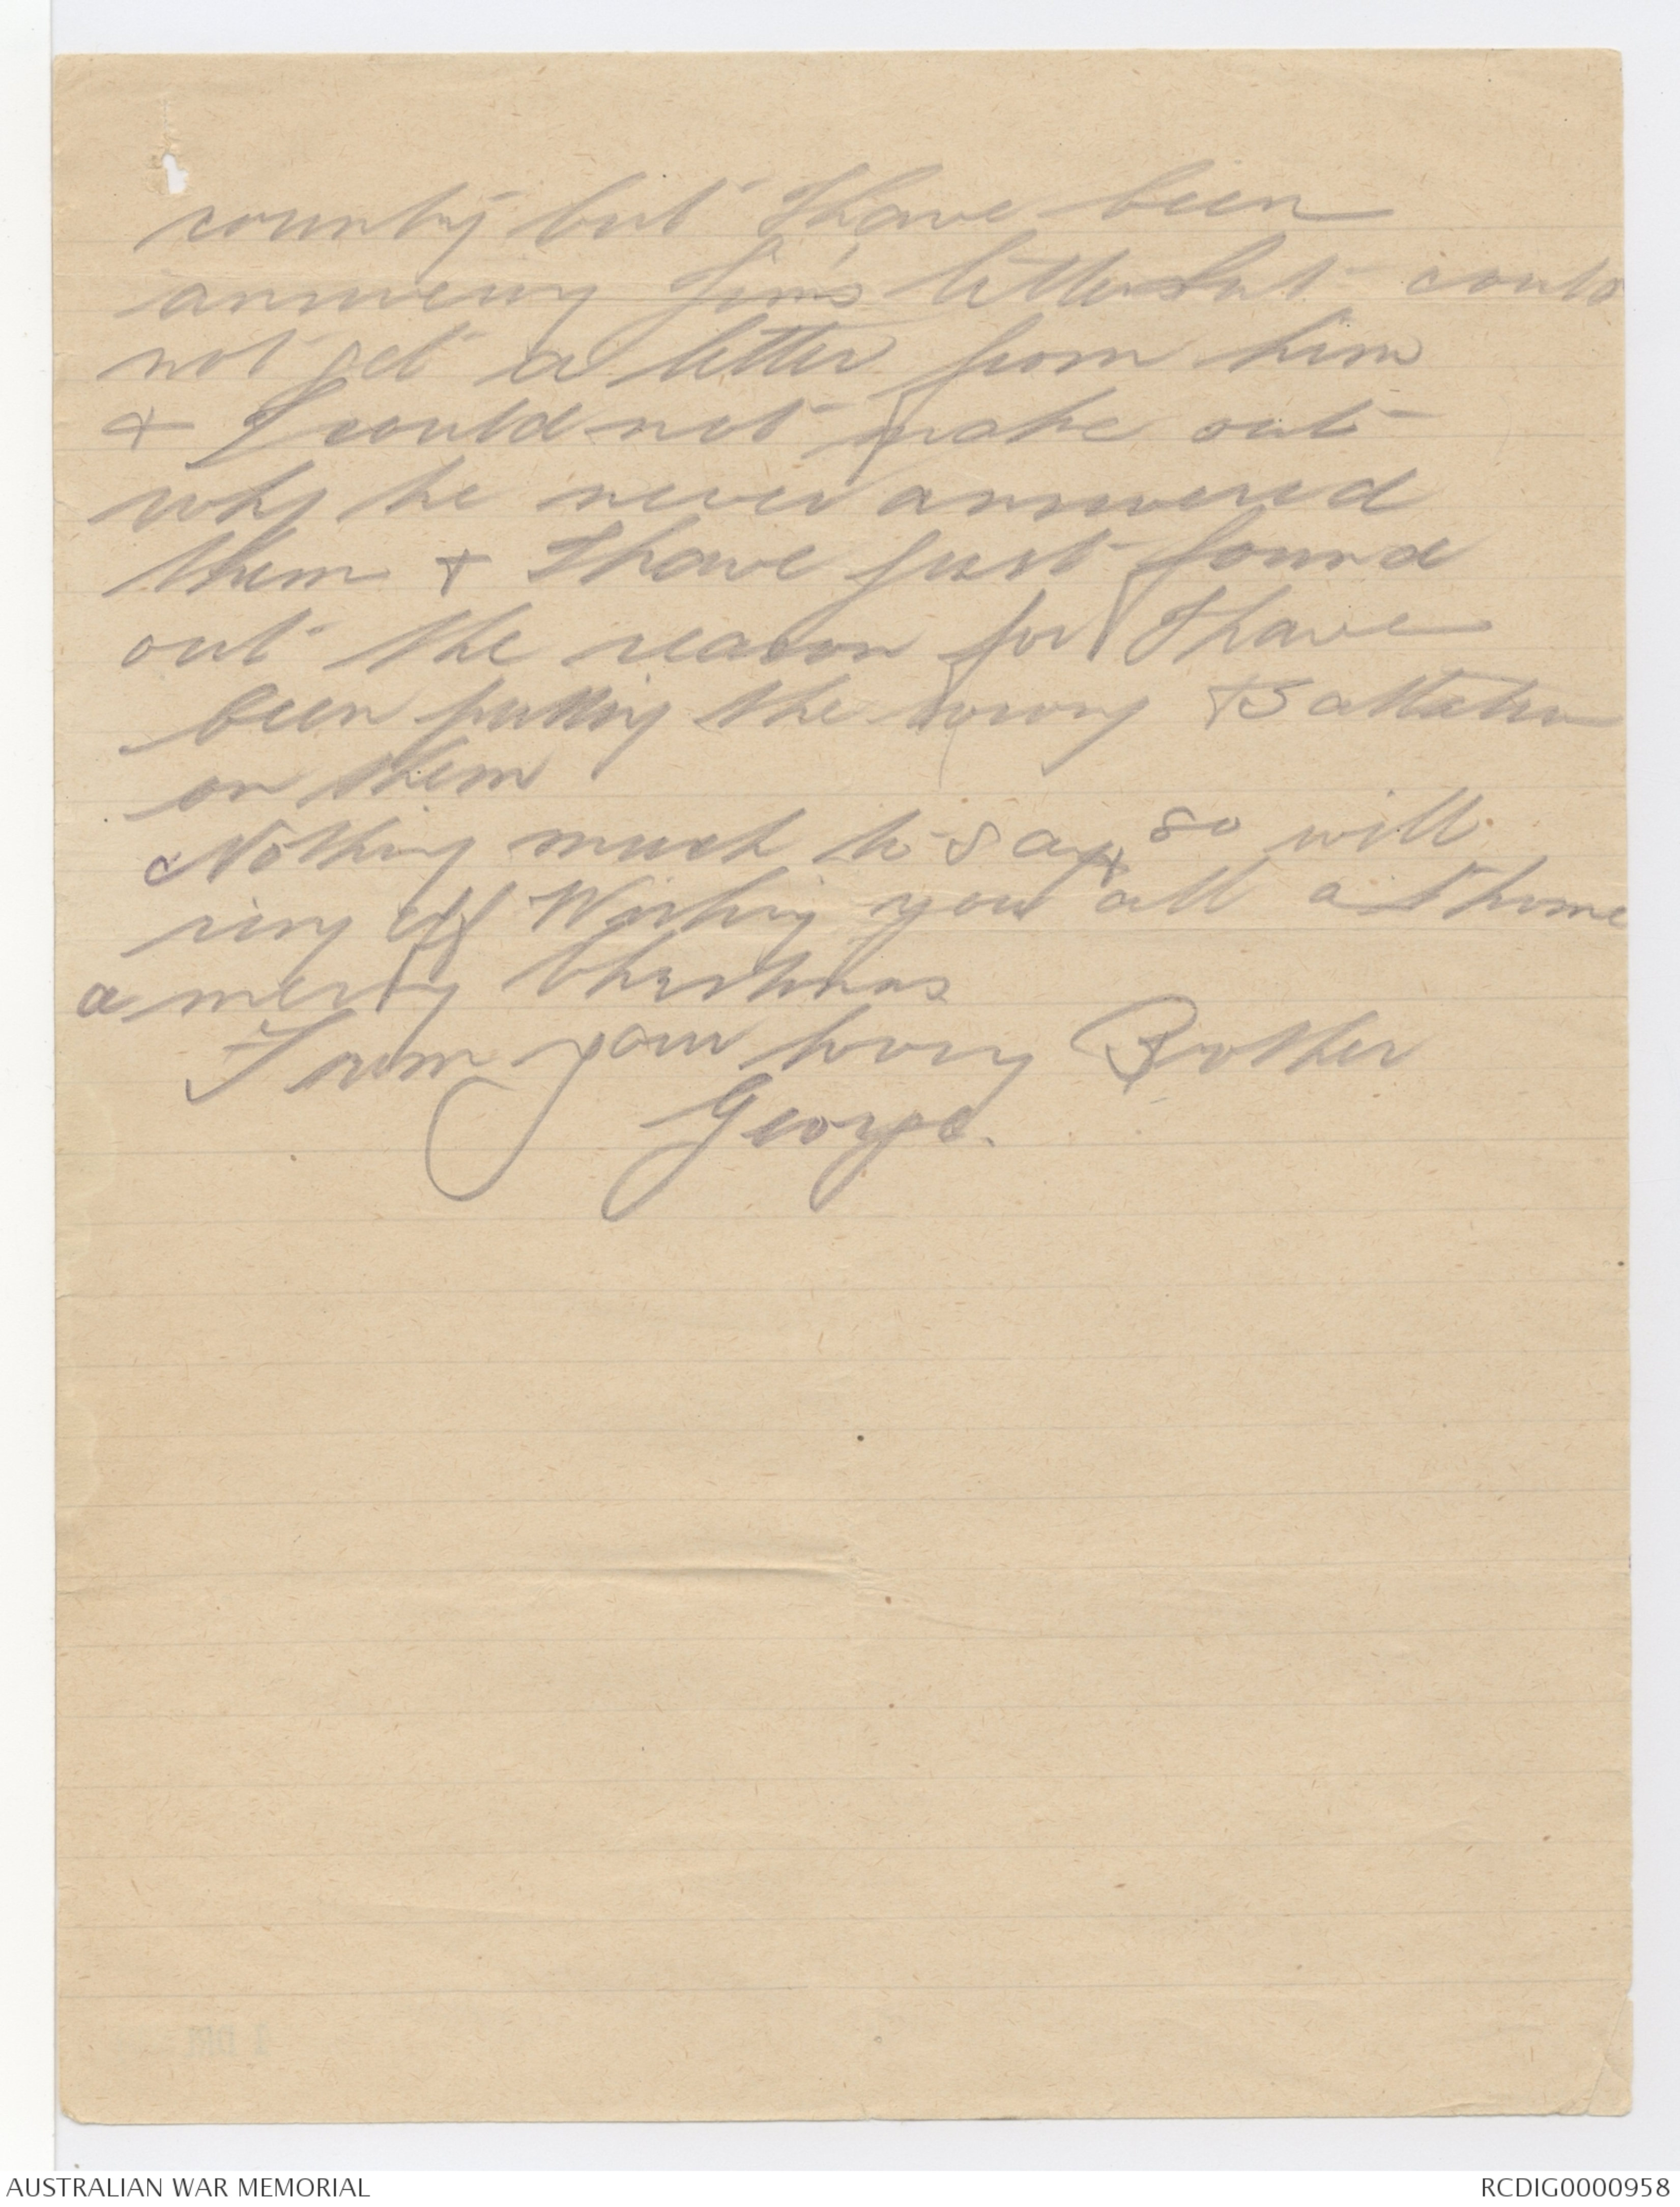 country but I have been
answering Jim's letters but could
not get a letter from him
+ I could not make out
why he never answered
them + I have just found
out the reason for I have
been putting the wrong Battalion
on them
Nothing much to say so will
ring off Wishing you all at home
a merry Christmas
I am your loving Brother
George.
AUSTRALIAN WAR MEMORIAL
RCDIG0000958